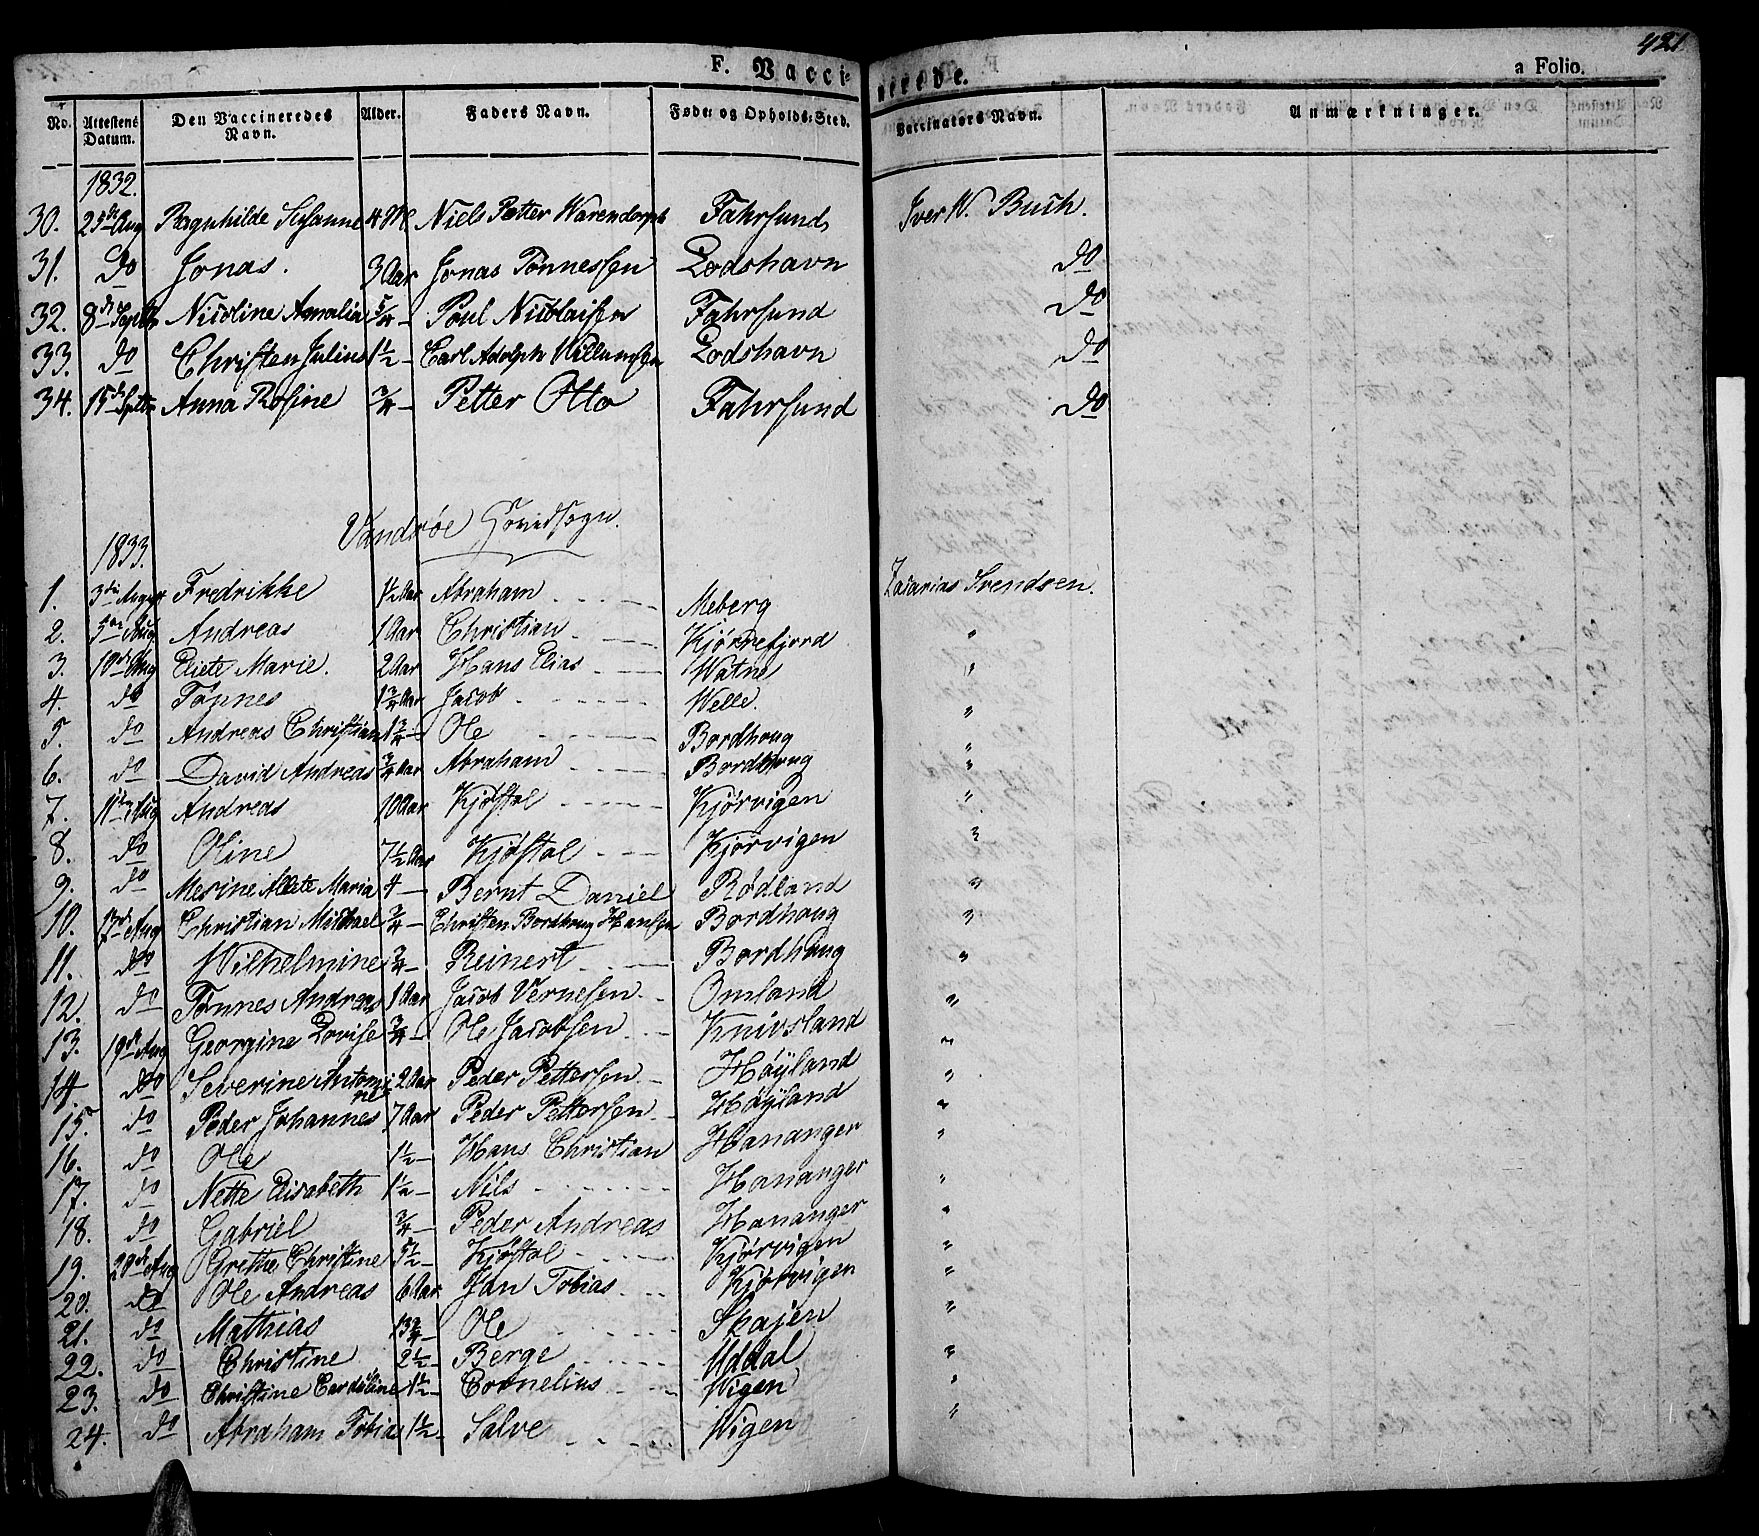 F. Vaccinerede.
a Folio. 421
No. Attestens Datum. Den Vaccineredes Navn. Alder. Faders Navn. Føde- og Opholds-Sted. Vaccinators Navn. Anmærkninger.
1832.
30. 25de Aug Ragnhilde Susanne 4 Niels Petter Warendorph Fahrsund Iver W. Buch.
31. do Jonas. 3 Aar Jonas Tønnessen Lodshavn do
32. 8de Septbr Nicoline Amalia 5/4 - Poul Nicolaisen Fahrsund do
33. do Christen Julius 1½ - Carl Adolph Willumsen Lodshavn do
34. 15de Septbr Anna Rosine ¾ - Petter Otto Fahrsund do
Vandsøe Hovedsogn.
1833.
1. 3die August Fredrikke 1½ Aar Abraham Meberg Zacarias Svendsen.
2. Aug Andreas 1 Aar Christian Kjørrefjord "
3. 10de Aug Eliete Marie. 2 Aar Hans Elias Watne "
4. do Tønnes 1¾ Aar Jacob Welle. "
5. do Andreas Christian 1¾ - Ole Bordhoug "
6. do David Andreas ¾ Aar Abraham Bordhoug "
7. 11te Aug Andreas 10 Aar Kjøstol Kjørvigen "
8. do Oline 7½ Aar Kjøstol Kjørvigen "
9. do Mesine Allete Maria 4 - Bernt Daniel Rødland "
10. 13de Aug Christian Michael ¾ - Christen Bordhoug Hansen Bordhoug "
11. do Wilhelmine ¾ - Reinert Bordhoug "
12. do Tønnes Andreas 1 Aar Jacob Vernesen Omland "
13. 19de Aug Georgine Lovise ¾ - Ole Jacobsen Knivsland "
14. do Severine Antomine 2 Aar Peder Pettersen Høyland "
15. do Peder Johannes 7 Aar Peder Pettersen Høyland "
16. do Ole 1½ - Hans Christian Hananger "
17. do Nette Elisabeth 1½ - Nils Hananger "
18. do Gabriel ¾ - Peder Andreas Hananger "
19. 29de Aug Grethe Christine 5½ - Kjøstol Kjørvigen "
20. do Ole Andreas 6 Aar Jan Tobias Kjørvigen "
21. do Mathias 13¾ - Ole Skajen "
22. do Christine 2½ - Berge Uddal "
23. do Christine Caroline 1½ - Cornelius Wigen "
24. do Abraham Tobias 1½ - Salve Wigen "